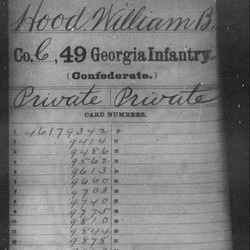 Hood William B.
Co. C, 49 Georgia Infantry.
(Confederate.)
Private Private
CARD NUMBERS.
1 46179342 "
2 9414 "
3 9486 "
4 9562 "
5 9613 "
6 9660 "
7 9703 "
9740 "
9775 "
9810 "
9844 "
9875 "